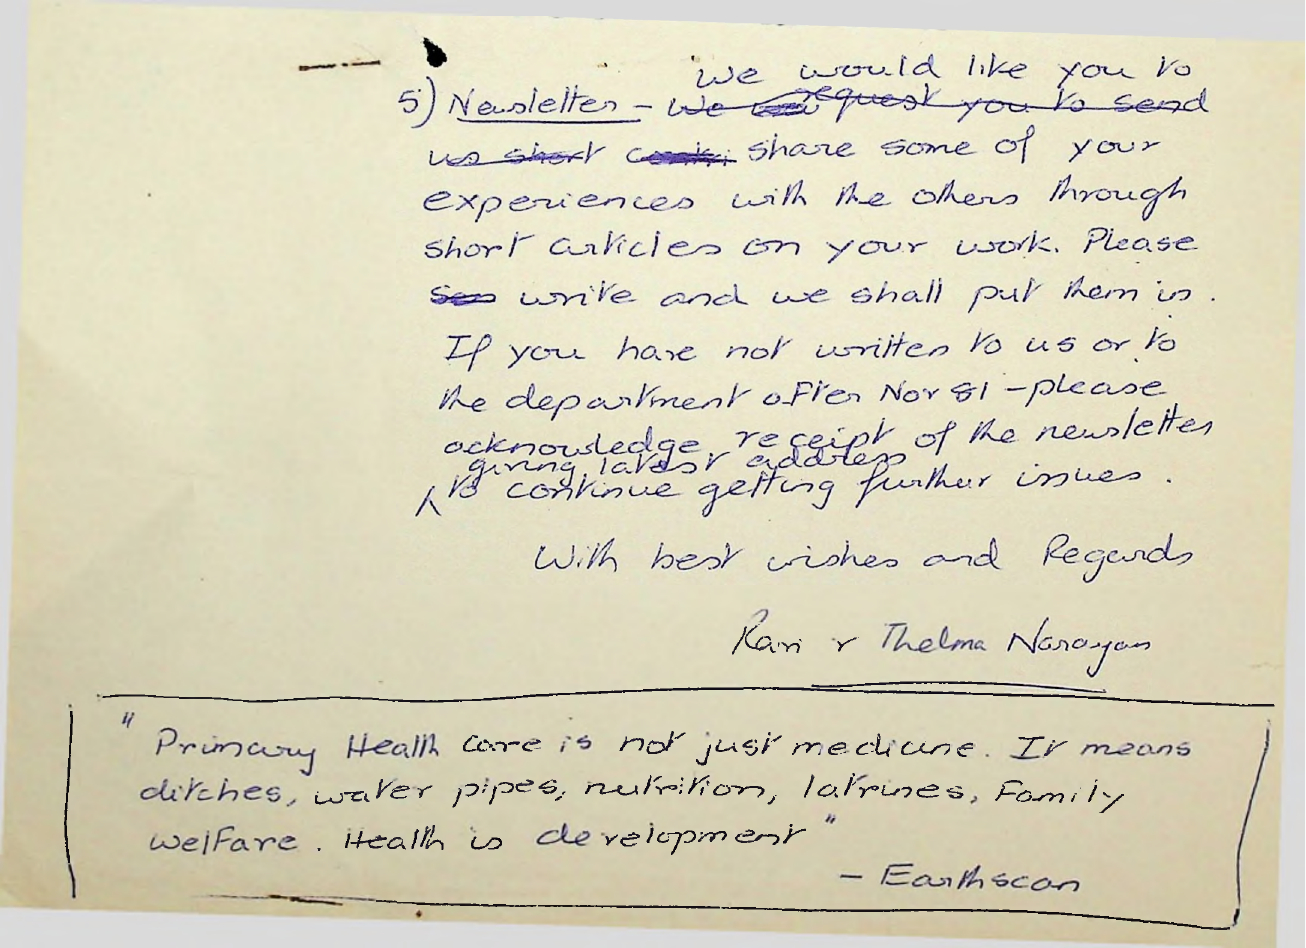 we would like you to
5) Newsletter - We request you to send
us short share some of your
experiences with the others through
short articles on your work. Please
write and we shall put them in.
If you have not written to us or to
the department after Nov 81 - please
acknowledge receipt of the newsletter
giving latest address
to continue getting further issues.
With best wishes and Regards
Ravi & Thelma Narayan
"Primary Health Care is not just medicine. It means
ditches, water pipes, nutrition, latrines, Family
Welfare. Health is development"
- Earthscan